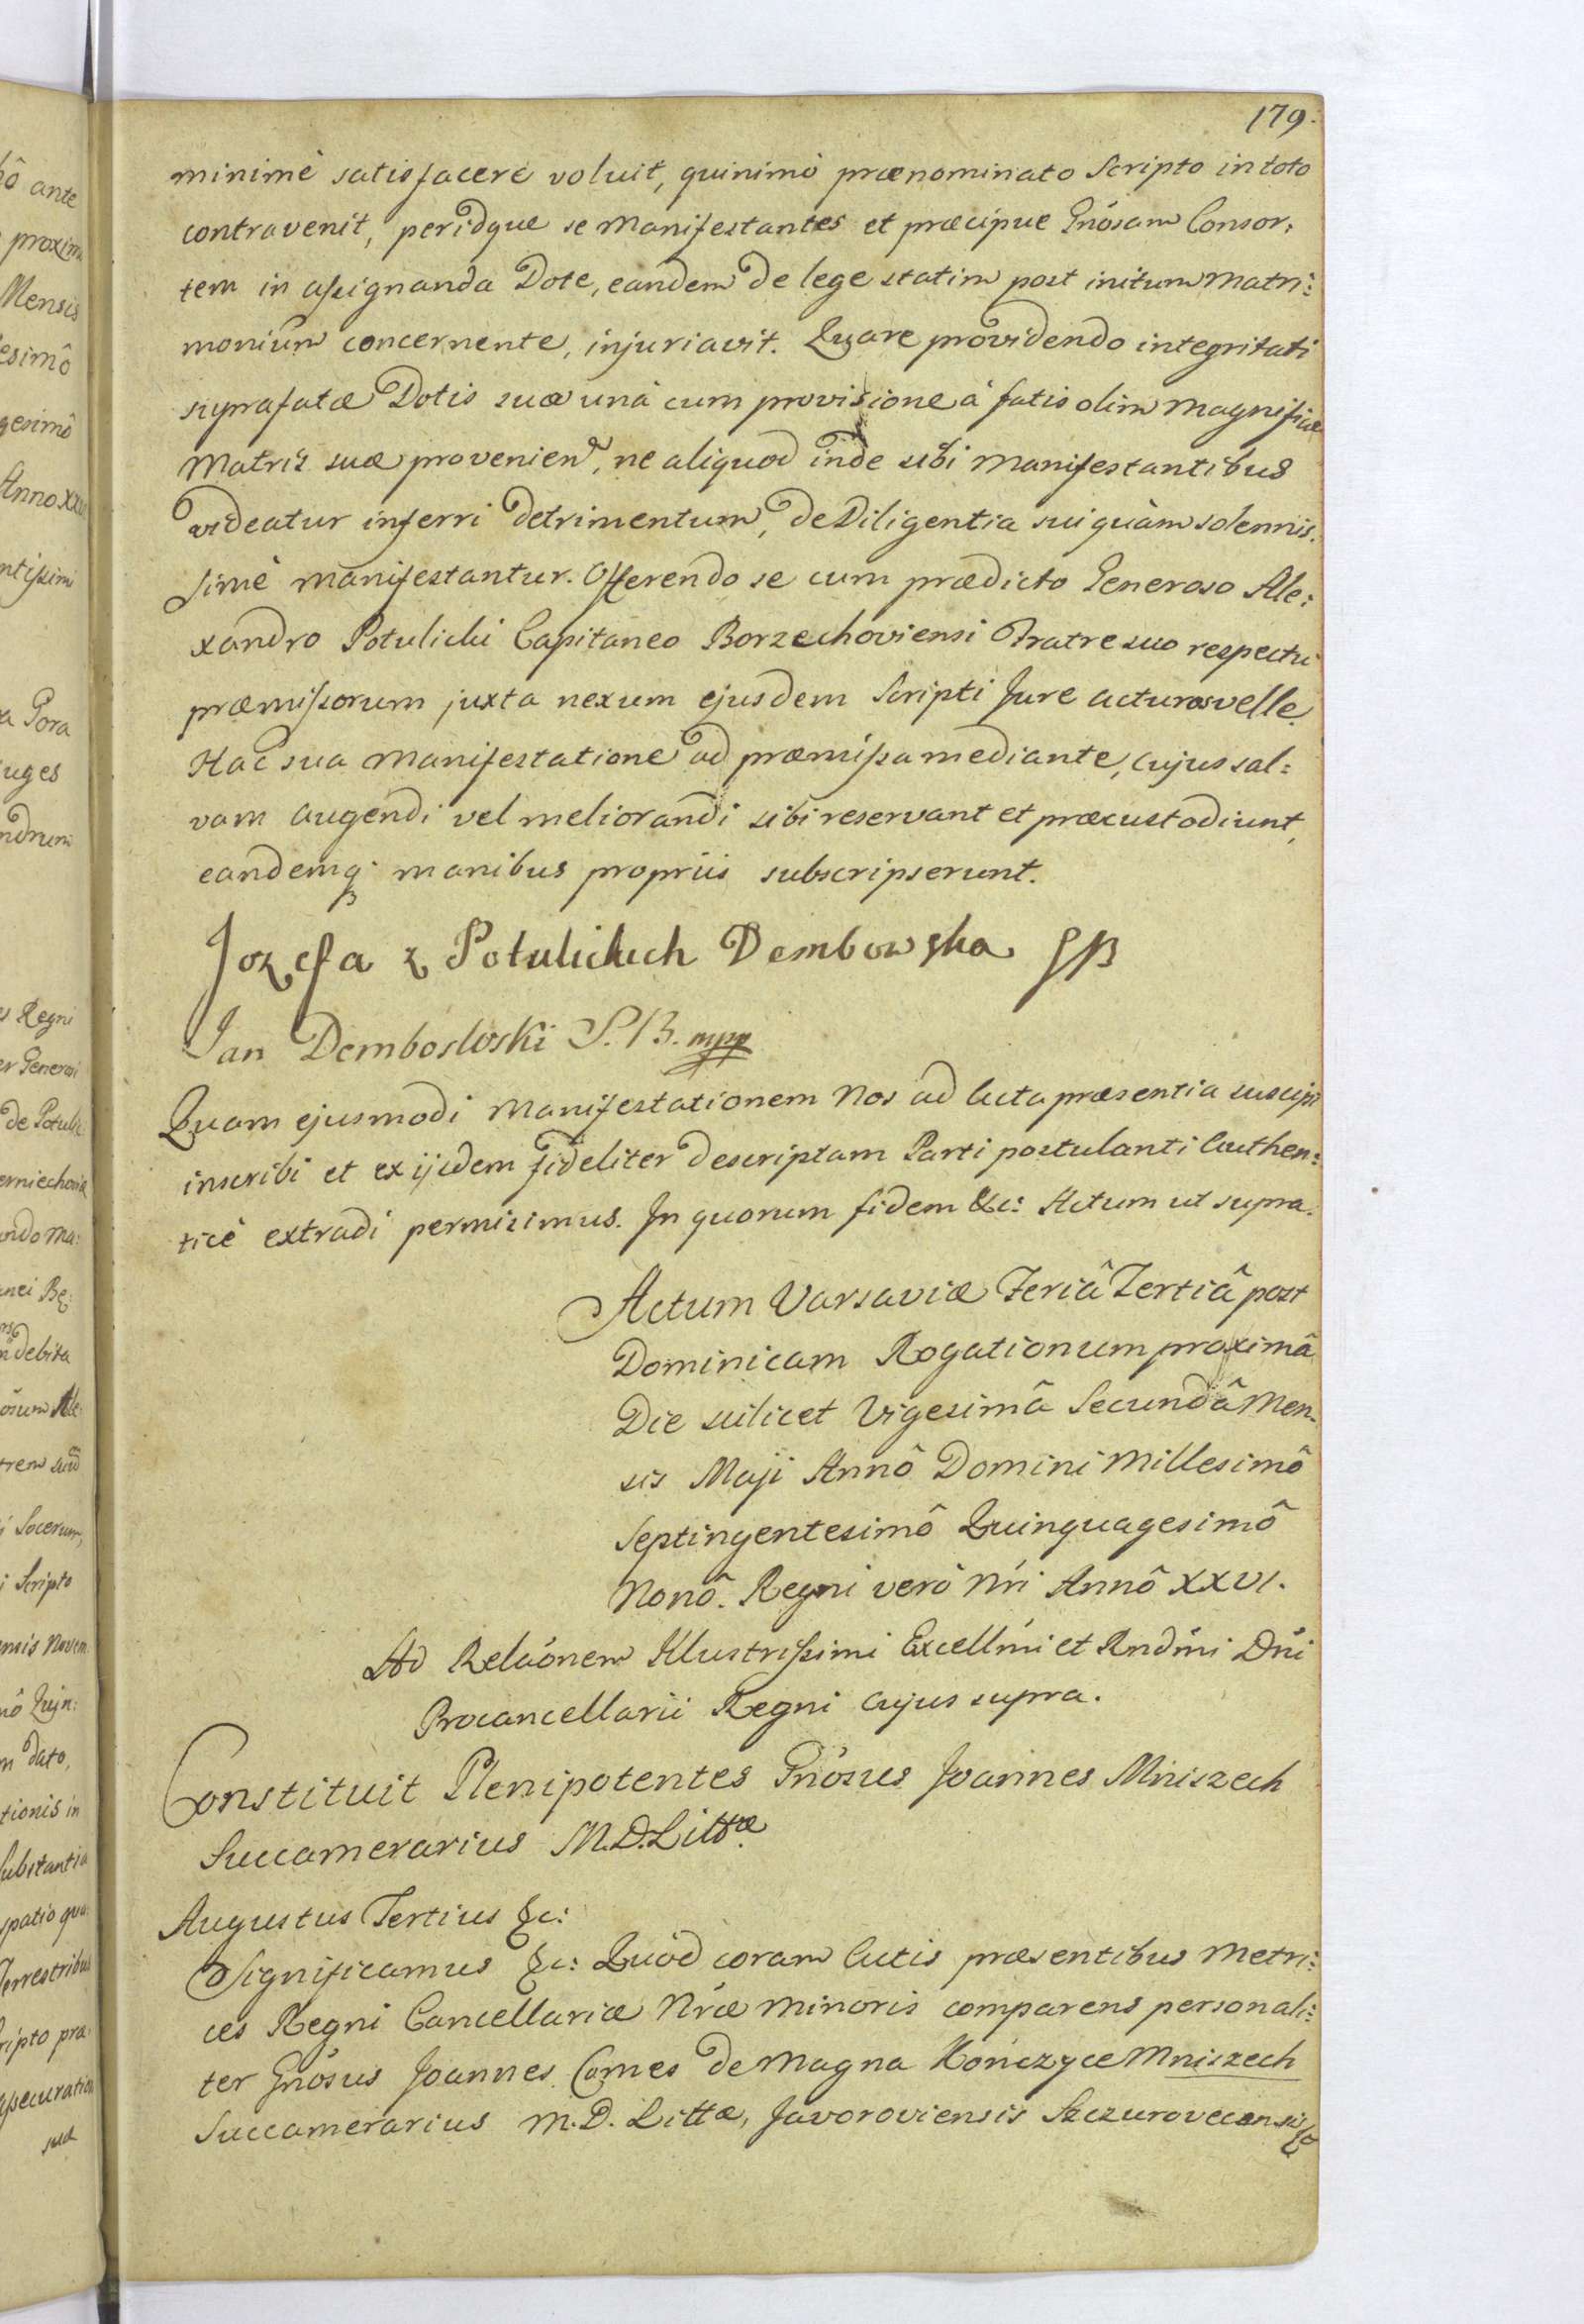 179.
minimè satisfacere voluit, quinimò prænominato Scripto in toto
contravenit, peridque se Manifestantes et præcipue Gnosam Consor:
tem in assignanda Dote, eandem de lege statim post initum Matri:
monium concernente, injuriavit. Quare providendo integritati
suprafatæ Dotis suæ unà cum provisione à fatis olim Magnificæ
Matris suæ provenien, ne aliquod inde sibi Manifestantibus
videatur inferri detrimentum, de Diligentia sui quàm solennis:
simè manifestantur. Offerendo se cum prædicto Generoso Ale:
xandro Potulicki Capitaneo Borzechoviensi Fratre suo respectu
præmissorum juxta nexum ejusdem Scripti Jure acturos velle.
Hac sua Manifestatione ad præmissa mediante, cujus sal:
vam augendi vel meliorandi sibi reservant et præcustodiunt,
eandemq manibus propriis subscripserunt.
Jozefa z Potulickich Dembowska SB
Jan Dembowski S.B. mpp
Quam ejusmodi Manifestationem Nos ad Acta præsentia suscipi
inscribi et ex ijsdem fideliter descriptam Parti postulanti Authen:
ticè extradi permisimus. In quorum fidem &c: Actum ut supra.
Actum Varsaviæ Feriâ Tertiâ post
Dominicam Rogationum proximâ
Die scilicet Vigesimâ Secundâ Men:
sis Maji Annô Domini Millesimô
Septingentesimô Quinquagesimô
Nonô. Regni verò Nri Annô XXVI.
Ad Relaónem Illustrissimi Excellmi et Rndmi Dni
Procancellarii Regni cujus supra.
Constituit Plenipotentes Gnosus Joannes Mniszech
Succamerarius M.D.Littæ
Augustus Tertius &c:
Significamus &c: Quòd coram Actis præsentibus Metri:
ces Regni Cancellariæ Nræ Minoris comparens personali:
ter Gnosus Joannes Comes de Magna Kończyce Mniszech
Succamerarius M.D. Littæ, Javoroviensis Szczurovecensis